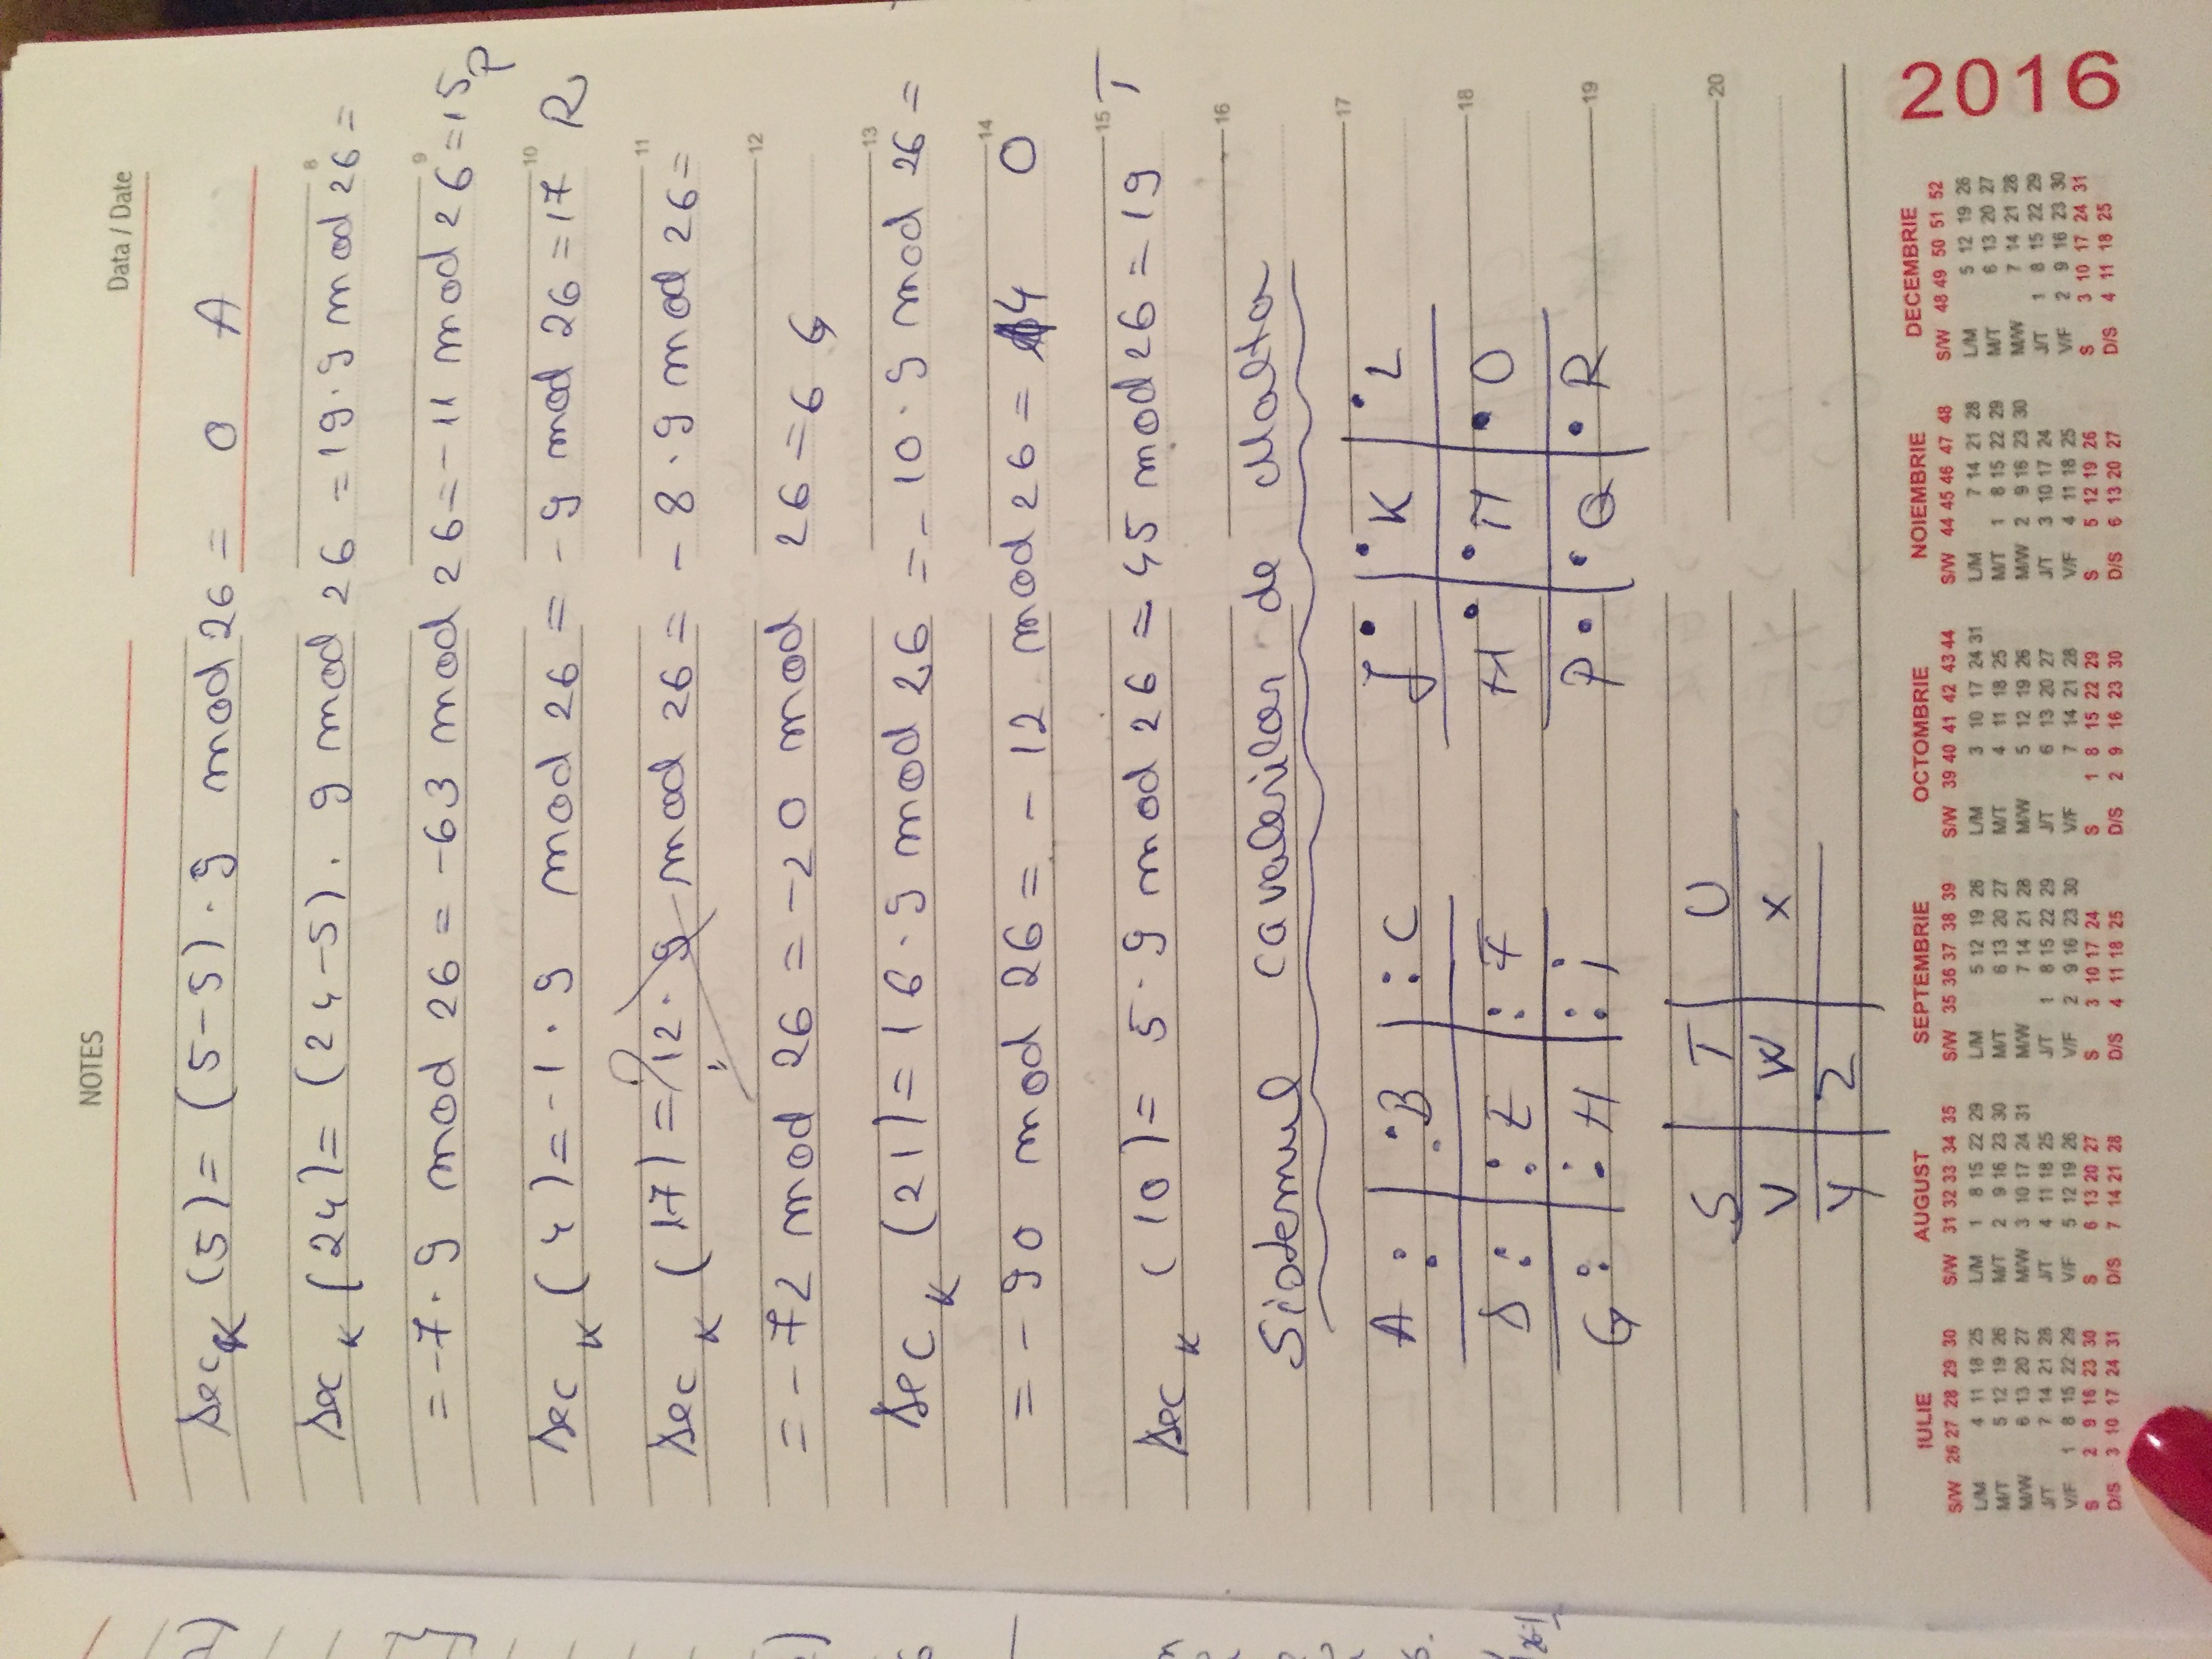 NOTES
Data / Date
dec_K (5) = (5-5) · 9 mod 26 = 0 A
dec_K (24) = (24-5) · 9 mod 26 = 19 · 9 mod 26 =
= -7 · 9 mod 26 = -63 mod 26 = -11 mod 26 = 15 P
dec_K (4) = -1 · 9 mod 26 = -9 mod 26 = 17 R
dec_K (17) = 12 · 9 mod 26 = -8 · 9 mod 26 =
= -72 mod 26 = -20 mod 26 = 6 G
dec_K (21) = 16 · 9 mod 26 = -10 · 9 mod 26 =
= -90 mod 26 = -12 mod 26 = 14 O
dec_K (10) = 5 · 9 mod 26 = 45 mod 26 = 19 T
Sistemul cavalerilor de Malta
A : | : B | : C
D : | : E | : F
G : | : H | : I
J • | • K | • L
M • | • N | • O
P • | • Q | • R
S | T | U
V | W | X
Y | Z |
8
9
10
11
12
13
14
15
16
17
18
19
20
IULIE
S/W 26 27 28 29 30
L/M 4 11 18 25
M/T 5 12 19 26
M/W 6 13 20 27
J/T 7 14 21 28
V/F 1 8 15 22 29
S 2 9 16 23 30
D/S 3 10 17 24 31
AUGUST
S/W 31 32 33 34 35
L/M 1 8 15 22 29
M/T 2 9 16 23 30
M/W 3 10 17 24 31
J/T 4 11 18 25
V/F 5 12 19 26
S 6 13 20 27
D/S 7 14 21 28
SEPTEMBRIE
S/W 35 36 37 38 39
L/M 5 12 19 26
M/T 6 13 20 27
M/W 7 14 21 28
J/T 1 8 15 22 29
V/F 2 9 16 23 30
S 3 10 17 24
D/S 4 11 18 25
OCTOMBRIE
S/W 39 40 41 42 43 44
L/M 3 10 17 24 31
M/T 4 11 18 25
M/W 5 12 19 26
J/T 6 13 20 27
V/F 7 14 21 28
S 1 8 15 22 29
D/S 2 9 16 23 30
NOIEMBRIE
S/W 44 45 46 47 48
L/M 7 14 21 28
M/T 1 8 15 22 29
M/W 2 9 16 23 30
J/T 3 10 17 24
V/F 4 11 18 25
S 5 12 19 26
D/S 6 13 20 27
DECEMBRIE
S/W 48 49 50 51 52
L/M 5 12 19 26
M/T 6 13 20 27
M/W 7 14 21 28
J/T 1 8 15 22 29
V/F 2 9 16 23 30
S 3 10 17 24 31
D/S 4 11 18 25
2016